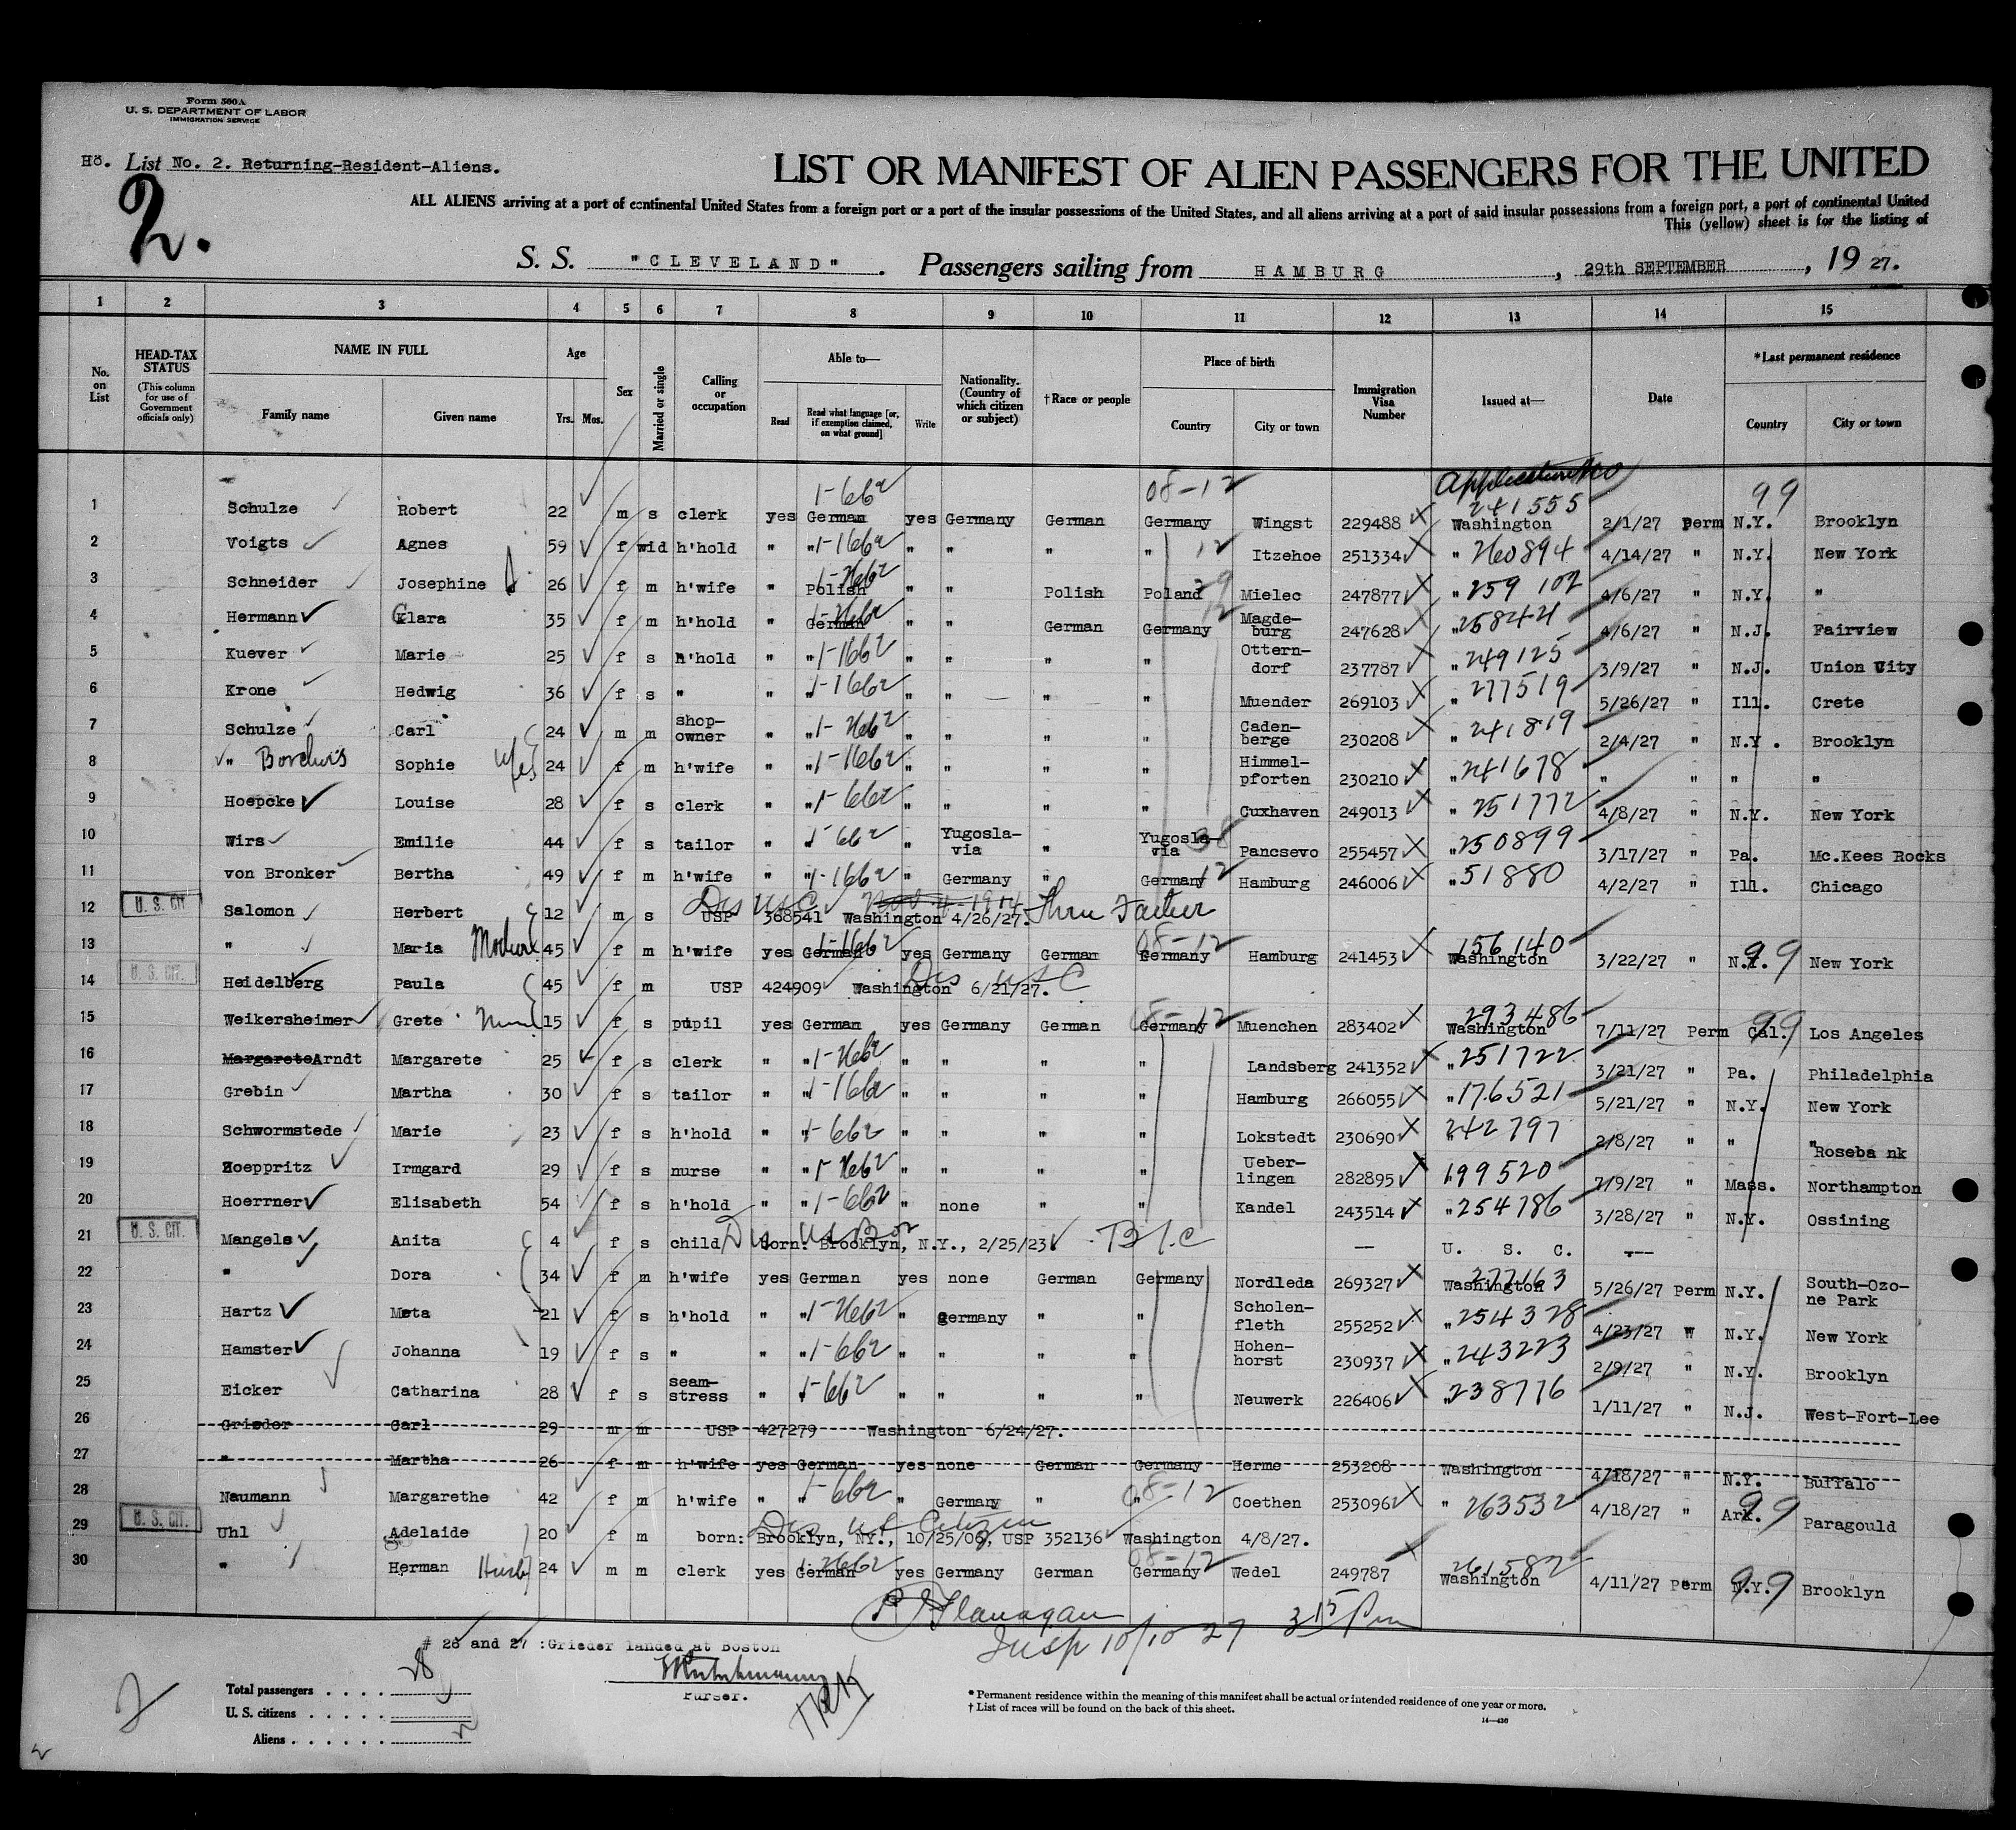 Form 500A
U. S. DEPARTMENT OF LABOR
IMMIGRATION SERVICE
H8. List No. 2. Returning-Resident-Aliens.
2.
LIST OR MANIFEST OF ALIEN PASSENGERS FOR THE UNITED
ALL ALIENS arriving at a port of continental United States from a foreign port or a port of the insular possessions of the United States, and all aliens arriving at a port of said insular possessions from a foreign port, a port of continental United
This (yellow) sheet is for the listing of
S. S. "CLEVELAND". Passengers sailing from HAMBURG, 29th SEPTEMBER, 19 27.
1 2 3 4 5 6 7 8 9 10 11 12 13 14 15
No. on List
HEAD-TAX STATUS (This column for use of Government officials only)
NAME IN FULL Family name Given name
Age Yrs. Mos.
Sex
Married or single
Calling or occupation
Able to— Read Read what language [or, if exemption claimed, on what ground] Write
Nationality. (Country of which citizen or subject)
†Race or people
Place of birth Country City or town
Immigration Visa Number
Issued at—
Date
*Last permanent residence Country City or town
Application No
1-662 08-12 241555 99
1 Schulze Robert 22 m s clerk yes German yes Germany German Germany Wingst 229488 Washington 2/1/27 Perm N.Y. Brooklyn
2 Voigts Agnes 59 f wid h'hold " " 1-1662 " " " " 12 Itzehoe 251334 " 260894 4/14/27 " N.Y. New York
3 Schneider Josephine 26 f m h'wife " Polish " " Polish Poland 29 Mielec 247877 " 259102 4/6/27 " N.Y. "
4 Hermann Clara 35 f m h'hold " German " " German Germany 12 Magde-burg 247628 " 258424 4/6/27 " N.J. Fairview
5 Kuever Marie 25 f s h'hold " " 1-1662 " " " " Ottern-dorf 237787 " 249125 3/9/27 " N.J. Union City
6 Krone Hedwig 36 f s " " " 1-1662 " " " " Muender 269103 " 277519 5/26/27 " Ill. Crete
7 Schulze Carl 24 m m shop-owner " " 1-1662 " " " " Caden-berge 230208 " 241819 2/4/27 " N.Y. Brooklyn
8 " Sophie 24 f m h'wife " " 1-1662 " " " " Himmel-pforten 230210 " 241678 " " " "
9 Hoepcke Louise 28 f s clerk " " 1-662 " " " " Cuxhaven 249013 " 251772 4/8/27 " N.Y. New York
10 Wirs Emilie 44 f s tailor " " 1-662 " Yugosla-via " Yugosla-via 38 Pancsevo 255457 " 250899 3/17/27 " Pa. Mc.Kees Rocks
11 von Bronker Bertha 49 f m h'wife " " 1-1662 " Germany " Germany 12 Hamburg 246006 " 51880 4/2/27 " Ill. Chicago
U. S. CIT
12 Salomon Herbert 12 m s USP 368541 Washington 4/26/27. Thru Father
13 " Maria Mother 45 f m h'wife yes German 1-1662 yes Germany German Germany 08-12 Hamburg 241453 156140 Washington 3/22/27 " N.Y. 99 New York
U. S. CIT.
14 Heidelberg Paula 45 f m USP 424909 Washington 6/21/27.
15 Weikersheimer Grete 15 f s pupil yes German yes Germany German Germany 08-12 Muenchen 283402 293486 Washington 7/11/27 Perm Cal. 99 Los Angeles
16 Margarete Arndt Margarete 25 f s clerk " " 1-1662 " " " " Landsberg 241352 " 251722 3/21/27 " Pa. Philadelphia
17 Grebin Martha 30 f s tailor " " 1-1662 " " " " Hamburg 266055 " 176521 5/21/27 " N.Y. New York
18 Schwormstede Marie 23 f s h'hold " " 1-662 " " " " Lokstedt 230690 " 242797 2/8/27 " " "Roseba nk
19 Hoeppritz Irmgard 29 f s nurse " " 1-1662 " " " " Ueber-lingen 282895 199520 7/9/27 " Mass. Northampton
20 Hoerrner Elisabeth 54 f s h'hold " " 1-662 " none " " Kandel 243514 " 254786 3/28/27 " N.Y. Ossining
U. S. CIT.
21 Mangels Anita 4 f s child Born: Brooklyn, N.Y., 2/25/23 — U. S. C. ---
22 " Dora 34 f m h'wife yes German yes none German Germany Nordleda 269327 277163 Washington 5/26/27 Perm N.Y. South-Ozo-ne Park
23 Hartz Meta 21 f s h'hold " " 1-1662 " Germany " " Scholen-fleth 255252 " 254328 4/23/27 " N.Y. New York
24 Hamster Johanna 19 f s " " " 1-662 " " " " Hohen-horst 230937 " 243223 2/9/27 " N.Y. Brooklyn
25 Eicker Catharina 28 f s seam-stress " " 1-662 " " " " Neuwerk 226406 " 238776 1/11/27 " N.J. West-Fort-Lee
26 Grieder Carl 29 m m USP 427279 Washington 6/24/27.
27 " Martha 26 f m h'wife yes German yes none German Germany Herme 253208 Washington 4/18/27 " N.Y. Buffalo
28 Naumann Margarethe 42 f m h'wife " " 1-662 " Germany " " 08-12 Coethen 253096 " 263532 4/18/27 " Ark. 99 Paragould
U. S. CIT.
29 Uhl Adelaide 20 f m Dis US Citizen born: Brooklyn, NY., 10/25/06, USP 352136 Washington 4/8/27.
30 " Herman Husb 24 m m clerk yes German 1-1662 yes Germany German Germany 08-12 Wedel 249787 261582 Washington 4/11/27 Perm N.Y. 99 Brooklyn
Flanagan
Insp 10/10 27 3 15 Pm
# 26 and 27 :Grieder landed at Boston
Purser.
Total passengers . . . . 28
U. S. citizens . . . . .
Aliens . . . . . .
2
* Permanent residence within the meaning of this manifest shall be actual or intended residence of one year or more.
† List of races will be found on the back of this sheet.
14—430